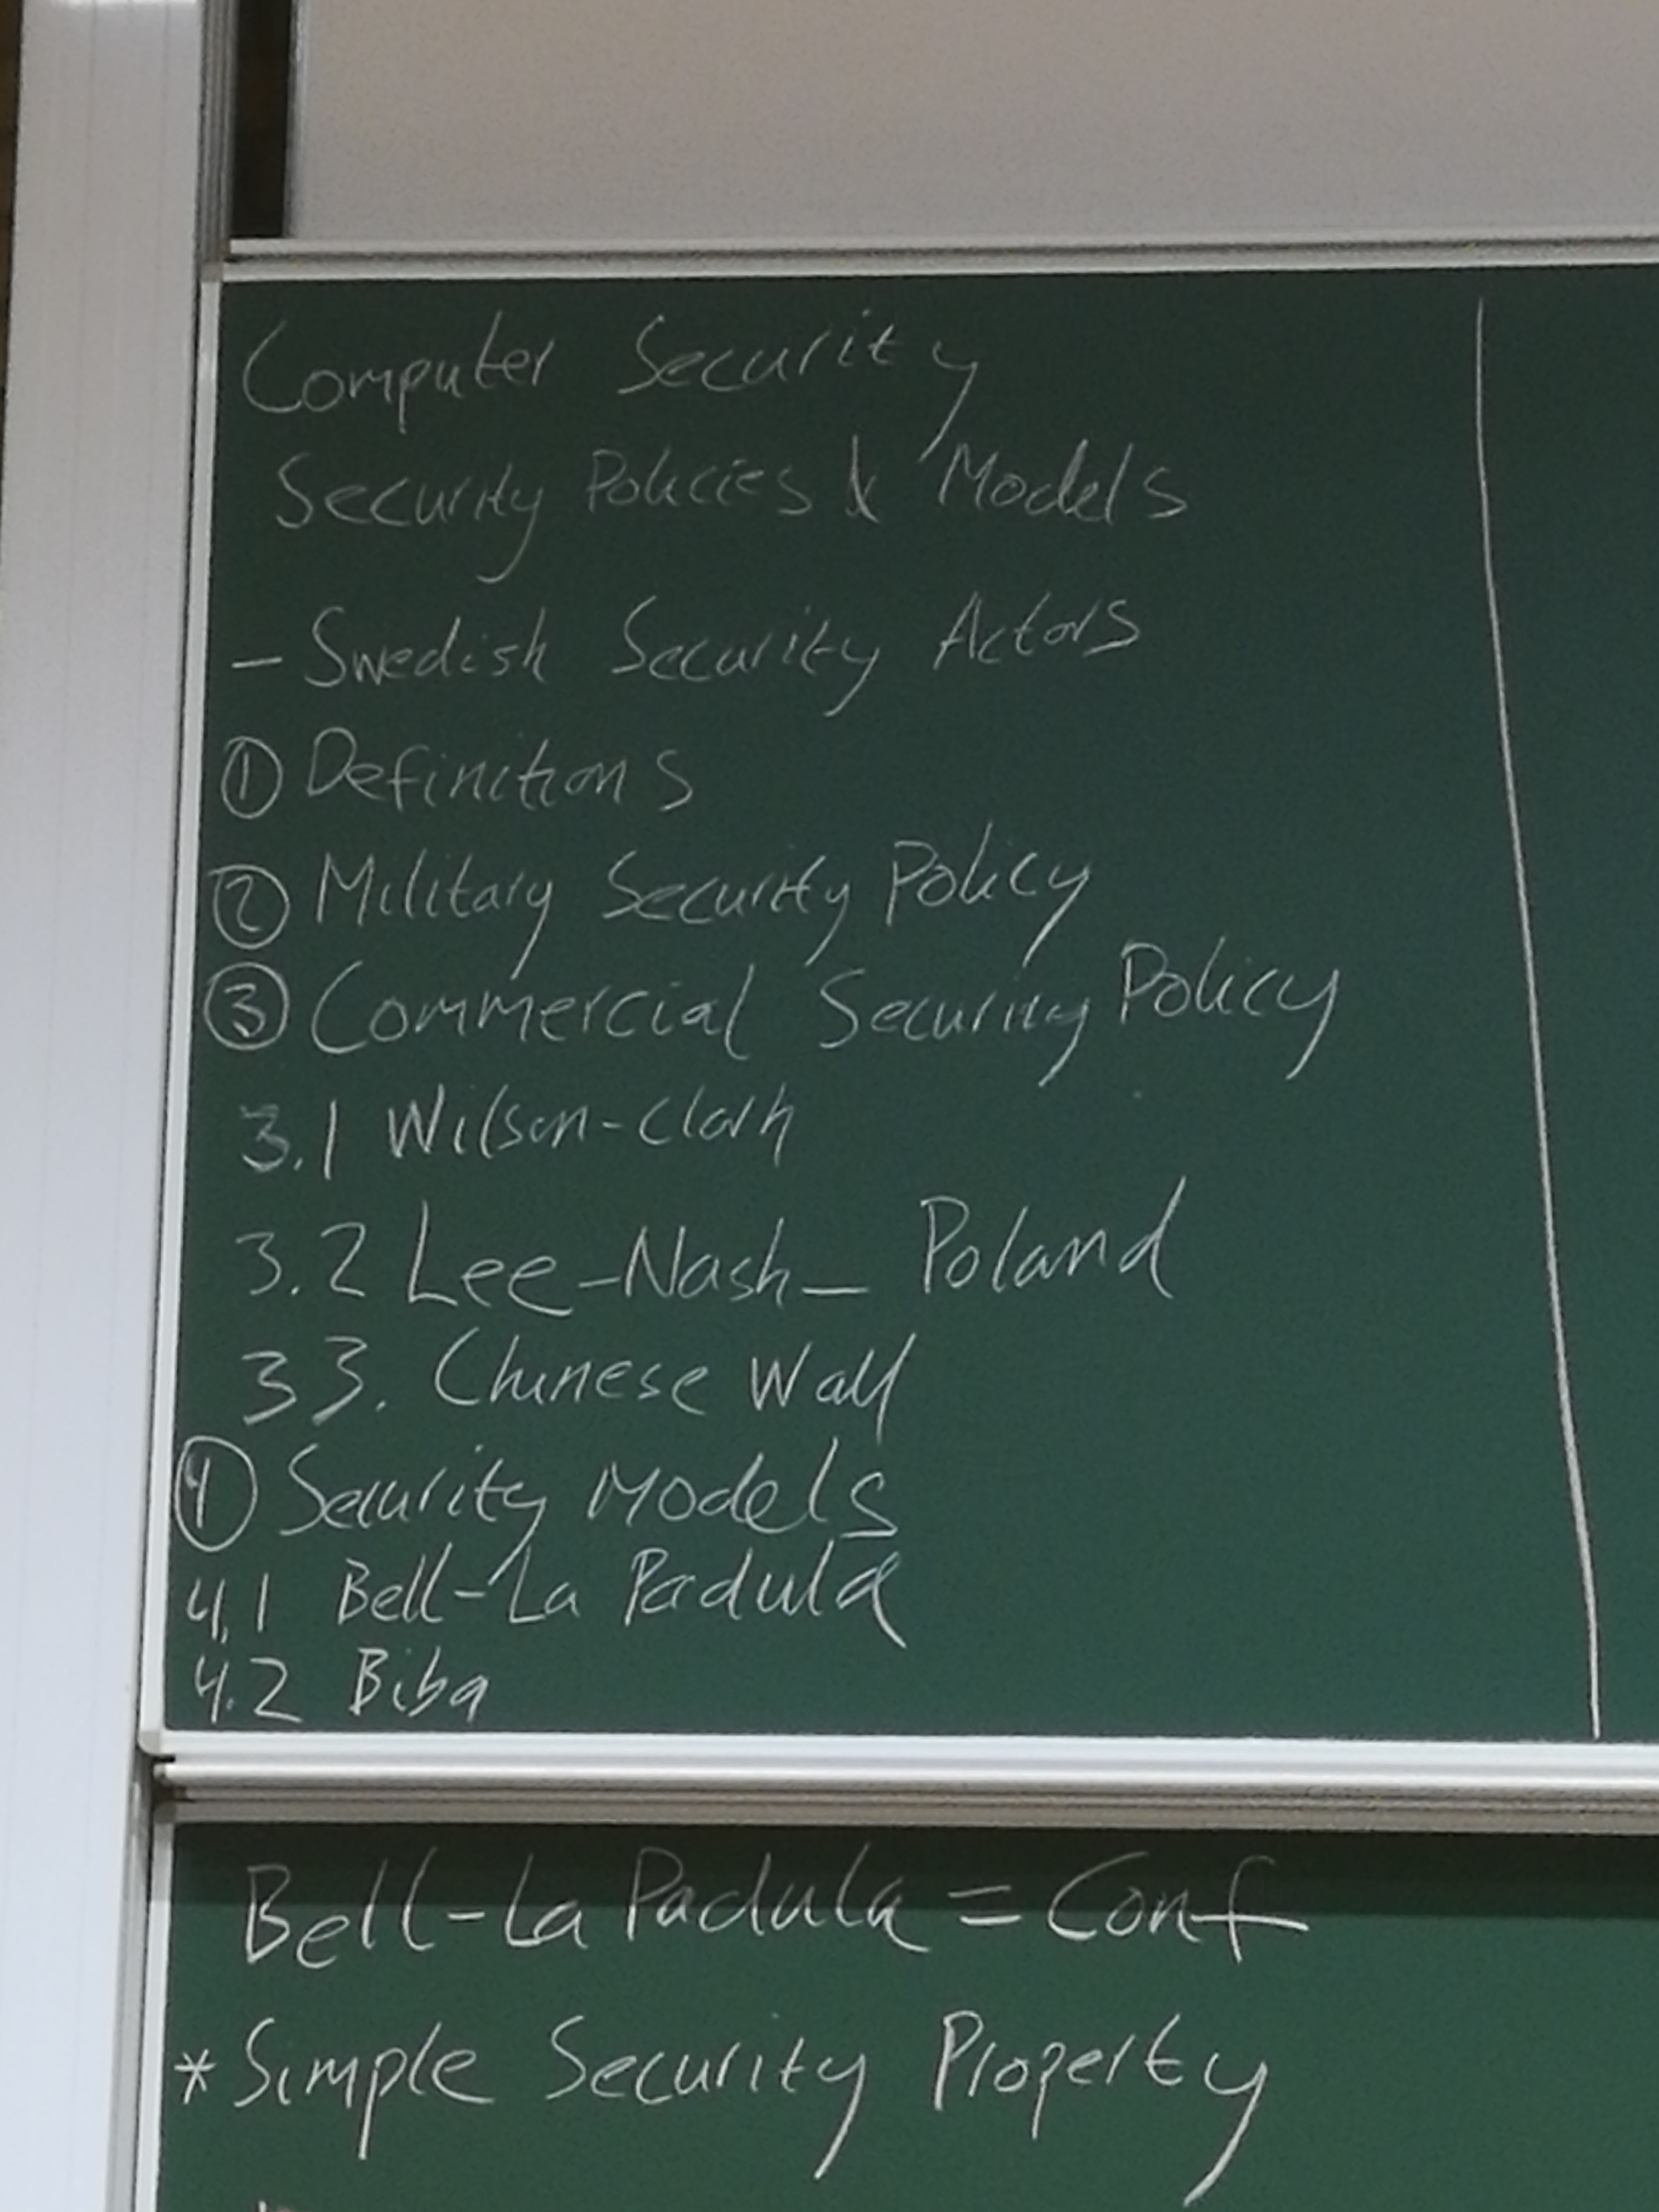 Computer Security
Security Policies & Models
- Swedish Security Actors
① Definitions
② Military Security Policy
③ Commercial Security Policy
3.1 Wilson-Clark
3.2 Lee-Nash- Poland
3 3. Chinese Wall
④ Security Models
4.1 Bell-La Padula
4.2 Biba
Bell-La Padula = Conf
* Simple Security Property